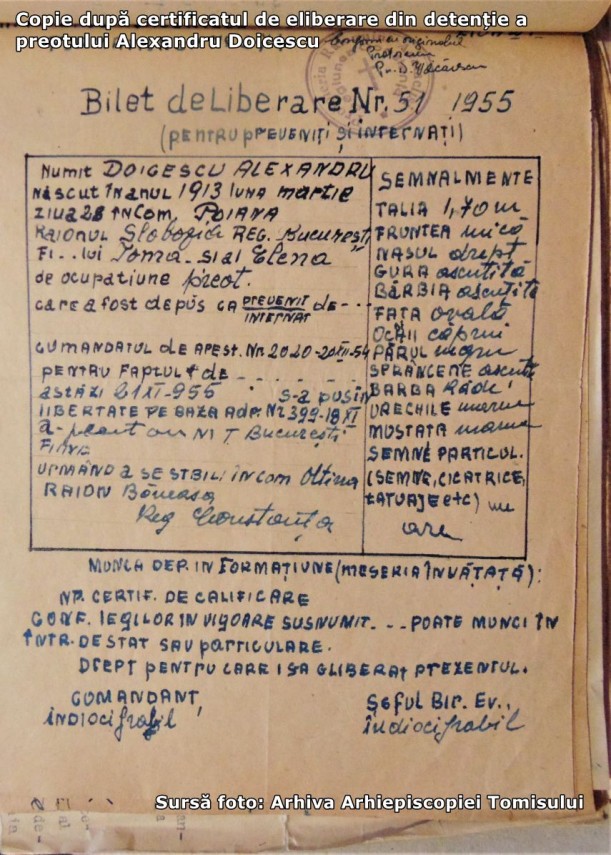 Copie după certificatul de eliberare din detenție a
preotului Alexandru Doicescu
Conform cu originalul
Protoiereu
Pr. D.
Bilet deLiberare Nr. 51 1955
(PENTRU PREVENIȚI ȘI INTERNAȚI)
Numit DOICESCU ALEXANDRU
NĂSCUT ÎN ANUL 1913 LUNA martie
ZIUA 28 ÎN COM. POIANA
RAIONUL Slobozia REG. București
Fi.. lui Toma SI al Elena
de ocupațiune preot.
care a fost depus CA PREVENIT de - - -
INTERNAT
CUMANDATUL de APEST. Nr. 2020-20XII-54
PENTRU FAPTUL + de - - - -
astăzi 21 XI-955 s-a pusin
lIBERTATE PE BAZA ADP. Nr 399-18 XI
a plecat cu NIT București
FIIND
URMÂND a SE STBILI ÎN COM Oltina
RAION Băneasa
Reg Constanța
SEMNALMENTE
TALIA 1,70 m
FRUNTEA mică
NASUL drept
GURA ascuțită
BĂRBIA ascuțită
FAȚA ovală
OCHII căprui
PĂRUL negru
SPRÂNCENE ascuțite
BARBA Rade
URECHILE
MUSTAȚA
SEMNE PARTICUL.
(SEMNE, CICATRICE,
TATUAJE etc) nu
are
MUNCA DEP. IN FORMAȚIUNE (MESERIA ÎNVĂȚATĂ):
NR. CERTIF. DE CALIFICARE
CONF. lEGILOR IN VIGOARE SUSNUMIT. - - POATE MUNCI ÎN
ÎNTR. DE STAT SAU PARTICULARE.
DREPT PENTRU CARE I SA ELIBERAT PREZENTUL.
COMANDANT,
indiocifrabil
ȘEFUL BIR. EV.,
îndiocifrabil
Sursă foto: Arhiva Arhiepiscopiei Tomisului